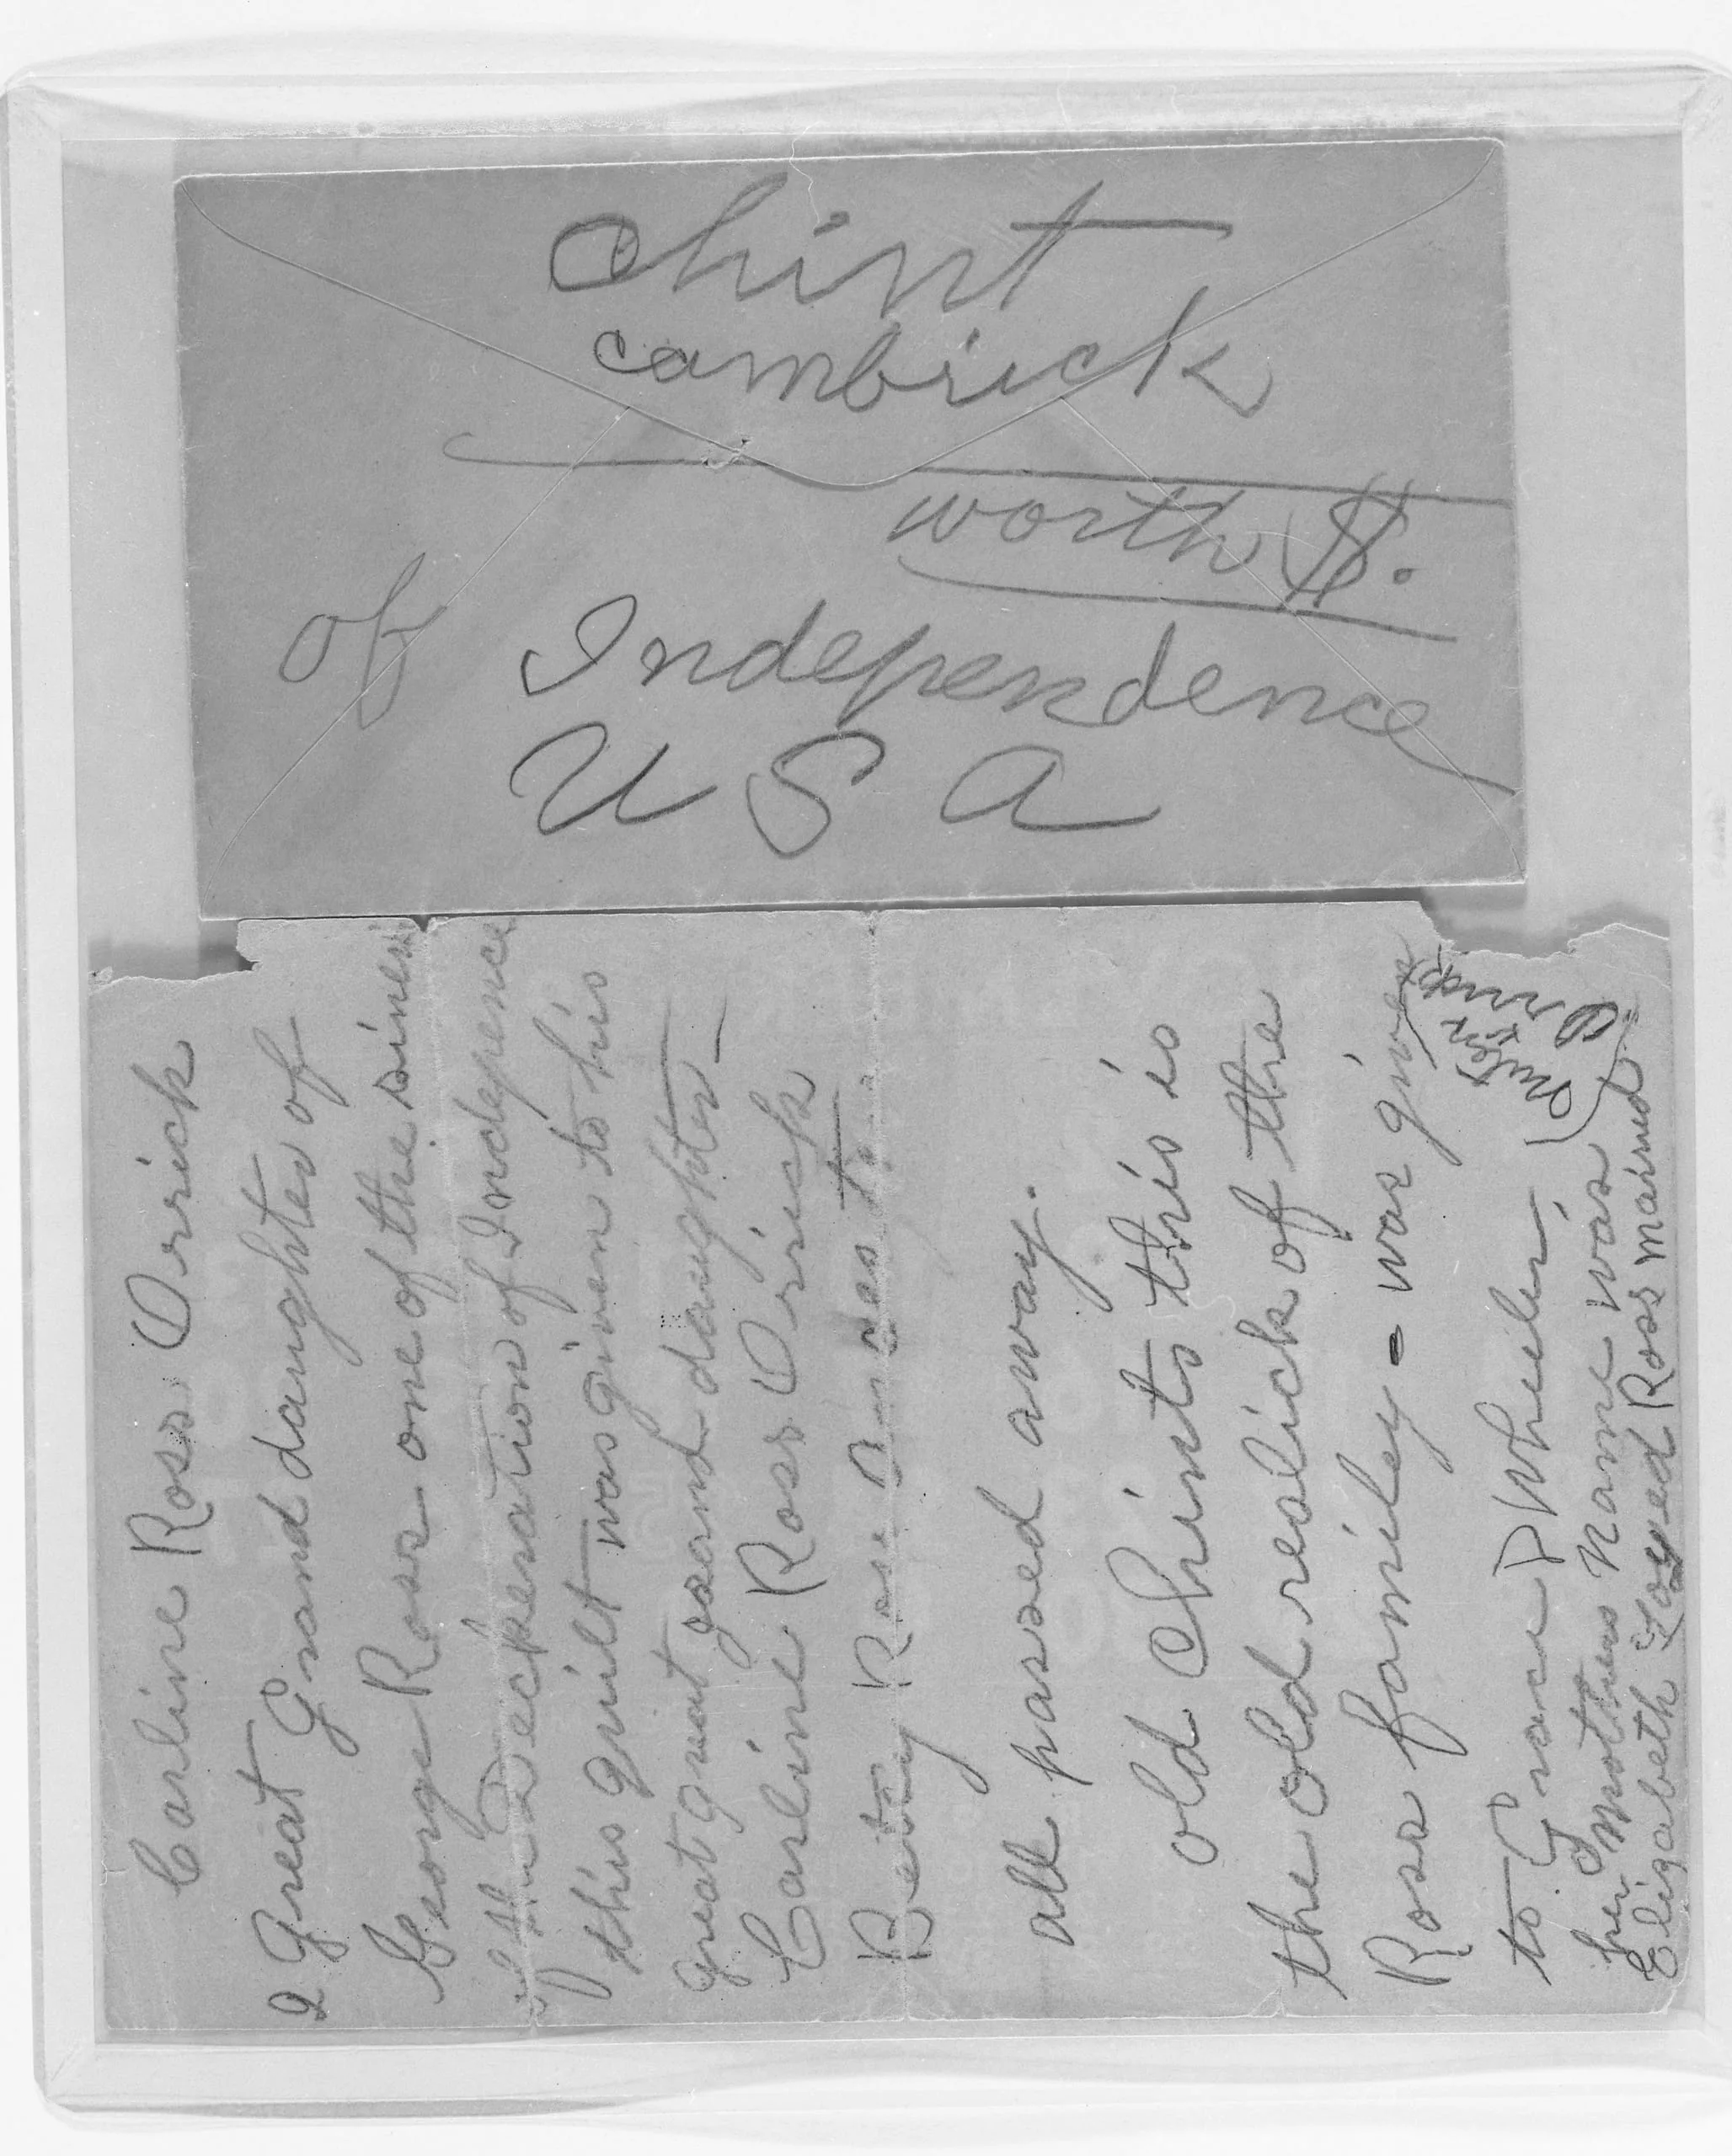 Chint
cambrick
worth $.
of Independence
U S A
Carline Ross Orrick
2 Great Grand daughter of
George Ross one of the siner
of the Deckeration of Independence
this quilt was given to his
great great grand daughter
Carline Ross Orrick
Betsy Ross
all passed away.
old Chints this is
the old relick of the
Ross familey - was given
to Grace Wheeler
her Mothers Name was
Elizabeth Loyed Ross married
Orrick